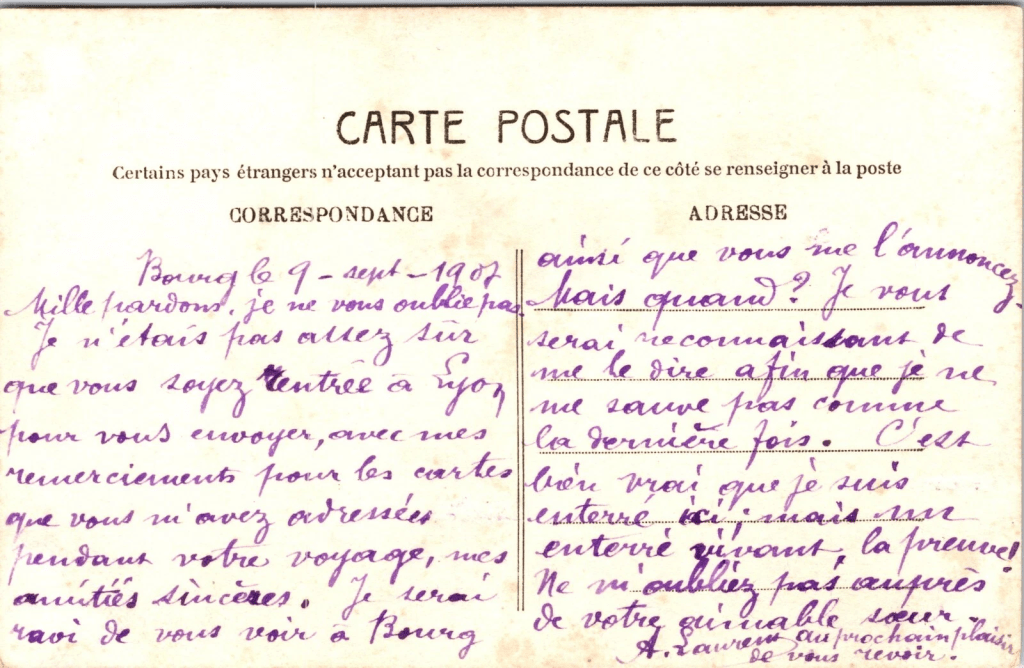 CARTE POSTALE
Certains pays étrangers n'acceptant pas la correspondance de ce côté se renseigner à la poste
CORRESPONDANCE
Bourg le 9 - sept - 1907
Mille pardons, je ne vous oublie pas.
Je n'étais pas assez sûr
que vous soyez rentrée à Lyon
pour vous envoyer, avec mes
remerciements pour les cartes
que vous m'avez adressées
pendant votre voyage, mes
amitiés sincères. Je serai
ravi de vous voir à Bourg
ADRESSE
ainsi que vous me l'annoncez.
Mais quand? Je vous
serai reconnaissant de
me le dire afin que je ne
me sauve pas comme
la dernière fois. C'est
bien vrai que je suis
enterré ici; mais un
enterré vivant, la preuve!
Ne m'oubliez pas auprès
de votre aimable sœur.
A. Laurent au prochain plaisir
de vous revoir.